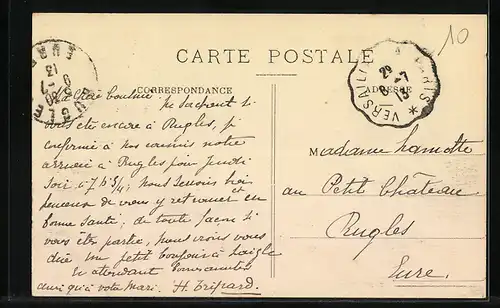 10
CARTE POSTALE
CORRESPONDANCE
ADRESSE
VERSAILLES A PARIS
2º
8 - 7
13
EURE
9 - 7
13
Ma Chère cousine
ne sachant si
vous êtes encore à Rugles, je
confirme à nos cousins notre
arrivée à Rugles pour jeudi
soir à 7 h 3/4; nous serions très
heureux de vous y retrouver et en
bonne santé; de toute façon si
vous êtes partie, nous irons vous
dire un petit bonjour à Laigle
en attendant bonne santé
ainsi qu'à votre Mari. H. Tripard.
Madame Lamotte
au Petit Château
Rugles
Eure.